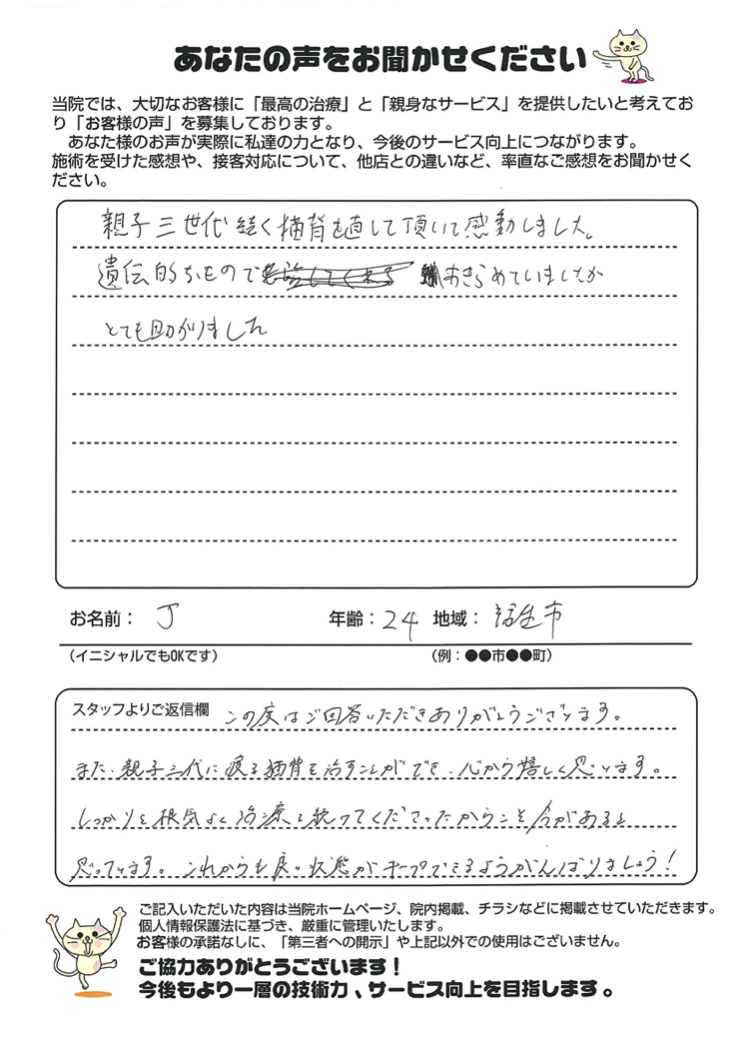 あなたの声をお聞かせください
当院では、大切なお客様に「最高の治療」と「親身なサービス」を提供したいと考えてお
り「お客様の声」を募集しております。
あなた様のお声が実際に私達の力となり、今後のサービス向上につながります。
施術を受けた感想や、接客対応について、他店との違いなど、率直なご感想をお聞かせく
ださい。
親子三世代続く猫背を直して頂いて感動しました。
遺伝的なもので あきらめていましたが
とても助かりました
お名前: J 年齢:24 地域: 福生市
(イニシャルでもOKです) (例:●●市●●町)
スタッフよりご返信欄 この度はご回答いただきありがとうございます。
また、親子三代に渡る猫背を治すことができ、心から嬉しく思います。
しっかりと根気よく治療を続けてくださったからこそ今があると
思っています。これからも良い状態がキープできるようがんばりましょう!
ご記入いただいた内容は当院ホームページ、院内掲載、チラシなどに掲載させていただきます。
個人情報保護法に基づき、厳重に管理いたします。
お客様の承諾なしに、「第三者への開示」や上記以外での使用はございません。
ご協力ありがとうございます!
今後もより一層の技術力、サービス向上を目指します。